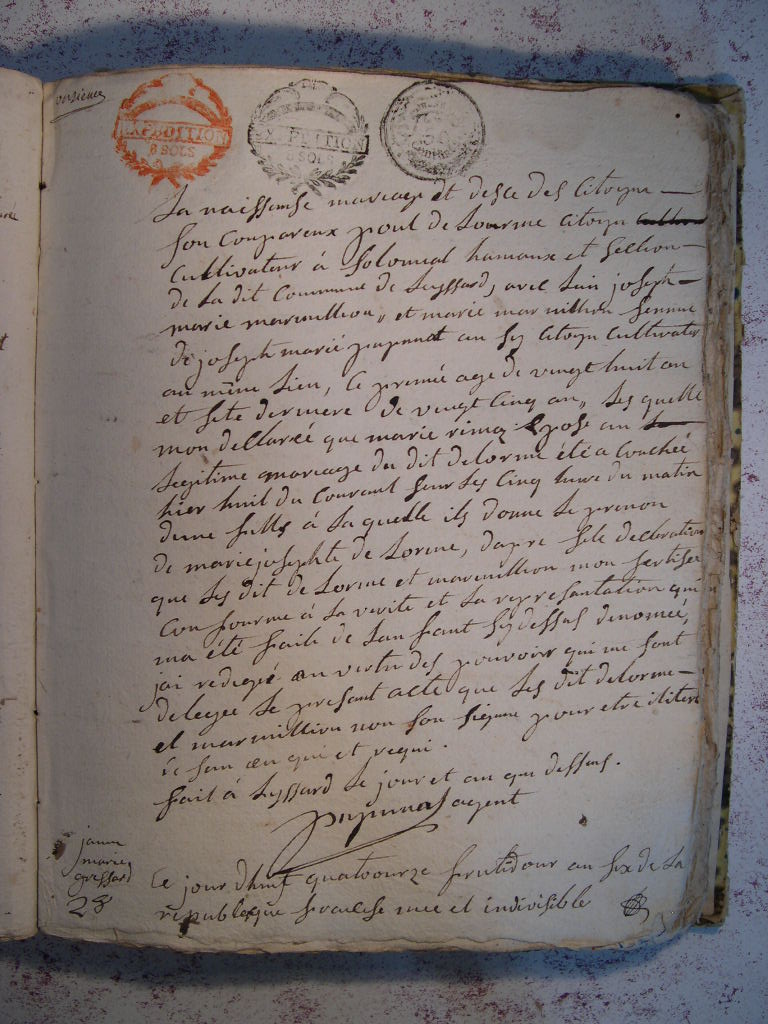 EXPEDITION
8 SOLS
EXPEDITION
8 SOLS
La naissanse mariage et desce des Citoyen
son Compareux poul de Lorme Citoyen
Cultivateur à Solomiat hamaux et section
de La dit Commune de Leyssard, avec Lain joseph
marie marmillion, et marie marmillion femme
de joseph marie papunat au sy Citoyen Cultivater
au même Lieu, Le premié age de vingt huit an
et sete derniere de vingt Cinq an, Les quelle
mon dellareé que marie epose an
Legitime mariage du dit delorme été a Couchée
hier huit du Courant sur Les Cinq hure du matin
dune fills à La quelle ils donne Le prenon
de marie josephte de Lorme, dapre sete declaration
que Les dit de Lorme et marmillion mon sertifiee
Confourme à La verite et La representation qui
ma été faite de Lan fant sy dessus denomeé,
jai redigée an vertu des pouvoirs qui me sont
delegee Le present acte que Les dit delorme
et marmillion non son signee pour etre iliteré
de san an qui et requi.
fait à Leyssard Le jour et an que dessus.
papunat agent
janne
marie
gressard
28
Ce jour dhuit quatourze frutidour an six de La
republicque francese une et indivisible